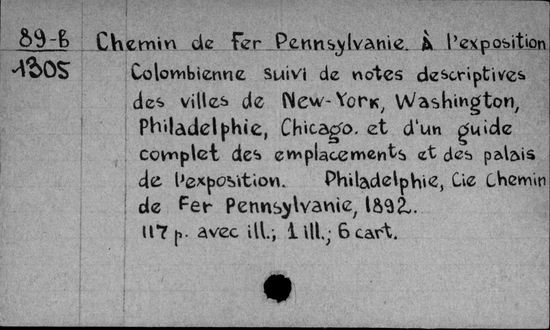 89-B Chemin de Fer Pennsylvanie. À l'exposition
1305 Colombienne suivi de notes descriptives
des villes de New-York, Washington,
Philadelphie, Chicago. et d'un guide
complet des emplacements et des palais
de l'exposition. Philadelphie, Cie Chemin
de Fer Pennsylvanie, 1892.
117 p. avec ill.; 1 ill.; 6 cart.